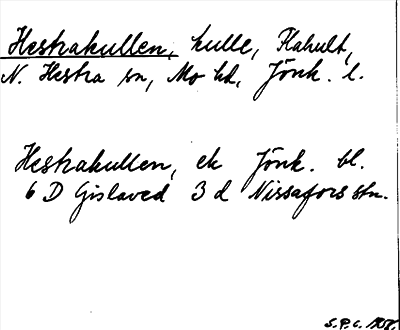 Hestrakullen, kulle, Flahult,
N. Hestra sn, Mo hd, Jönk. l.
Hestrakullen, ek Jönk. bl.
6 D Gislaved 3 d Nissafors stn.
S.P.C.